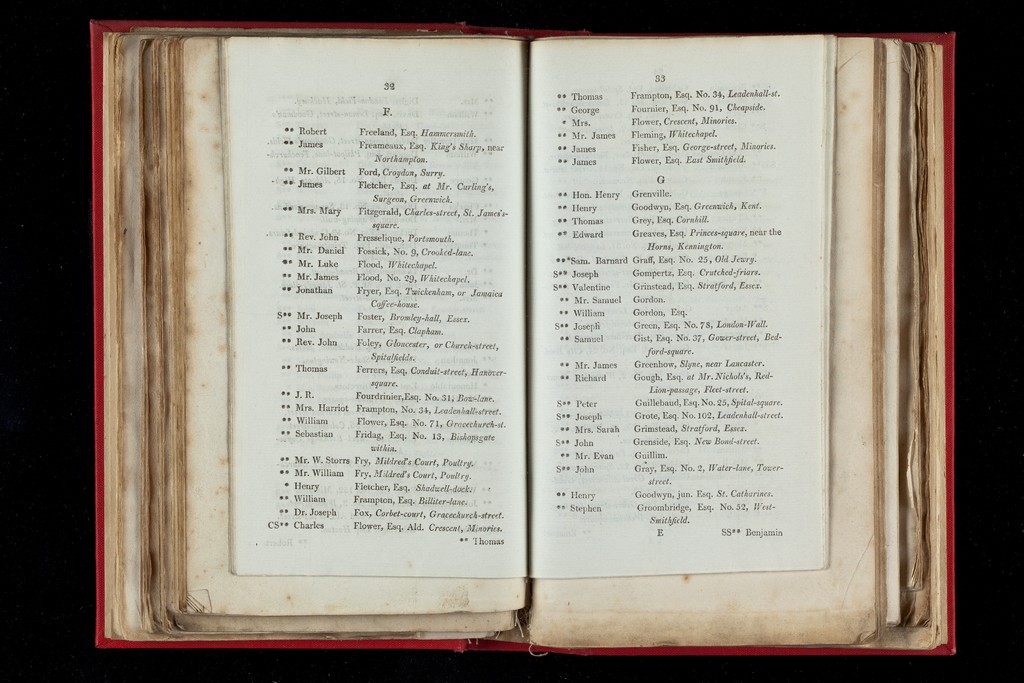 32
F.
** Robert Freeland, Esq. Hammersmith.
** James Freameaux, Esq. King's Sharp, near
Northampton.
** Mr. Gilbert Ford, Croydon, Surry.
** James Fletcher, Esq. at Mr. Curling's,
Surgeon, Greenwich.
** Mrs. Mary Fitzgerald, Charles-street, St. James's-
square.
** Rev. John Fresselique, Portsmouth.
** Mr. Daniel Fossick, No. 9, Crooked-lane.
** Mr. Luke Flood, Whitechapel.
** Mr. James Flood, No. 29, Whitechapel.
** Jonathan Fryer, Esq. Twickenham, or Jamaica
Coffee-house.
S** Mr. Joseph Foster, Bromley-hall, Essex.
** John Farrer, Esq. Clapham.
** Rev. John Foley, Gloucester, or Church-street,
Spitalfields.
** Thomas Ferrers, Esq. Conduit-street, Hanover-
square.
** J. R. Fourdrinier, Esq. No. 31, Bow-lane.
** Mrs. Harriot Frampton, No. 34, Leadenhall-street.
** William Flower, Esq. No. 71, Gracechurch-st.
** Sebastian Fridag, Esq. No. 13, Bishopsgate
within.
** Mr. W. Storrs Fry, Mildred's Court, Poultry.
** Mr. William Fry, Mildred's Court, Poultry.
* Henry Fletcher, Esq. Shadwell-dock.
** William Frampton, Esq. Billiter-lane.
** Dr. Joseph Fox, Corbet-court, Gracechurch-street.
CS** Charles Flower, Esq. Ald. Crescent, Minories.
** Thomas
33
** Thomas Frampton, Esq. No. 34, Leadenhall-st.
** George Fournier, Esq. No. 91, Cheapside.
* Mrs. Flower, Crescent, Minories.
** Mr. James Fleming, Whitechapel.
** James Fisher, Esq. George-street, Minories.
** James Flower, Esq. East Smithfield.
G
** Hon. Henry Grenville.
** Henry Goodwyn, Esq. Greenwich, Kent.
** Thomas Grey, Esq. Cornhill.
** Edward Greaves, Esq. Princes-square, near the
Horns, Kennington.
***Sam. Barnard Graff, Esq. No. 25, Old Jewry.
S** Joseph Gompertz, Esq. Crutched-friars.
S** Valentine Grinstead, Esq. Stratford, Essex.
** Mr. Samuel Gordon.
** William Gordon, Esq.
S** Joseph Green, Esq. No. 78, London-Wall.
** Samuel Gist, Esq. No. 37, Gower-street, Bed-
ford-square.
** Mr. James Greenhow, Slyne, near Lancaster.
** Richard Gough, Esq. at Mr. Nichols's, Red-
Lion-passage, Fleet-street.
S** Peter Guillebaud, Esq. No. 25, Spital-square.
S** Joseph Grote, Esq. No. 102, Leadenhall-street.
** Mrs. Sarah Grimstead, Stratford, Essex.
S** John Grenside, Esq. New Bond-street.
** Mr. Evan Guillim.
S** John Gray, Esq. No. 2, Water-lane, Tower-
street.
** Henry Goodwyn, jun. Esq. St. Catharines.
** Stephen Groombridge, Esq. No. 52, West-
Smithfield.
E SS** Benjamin